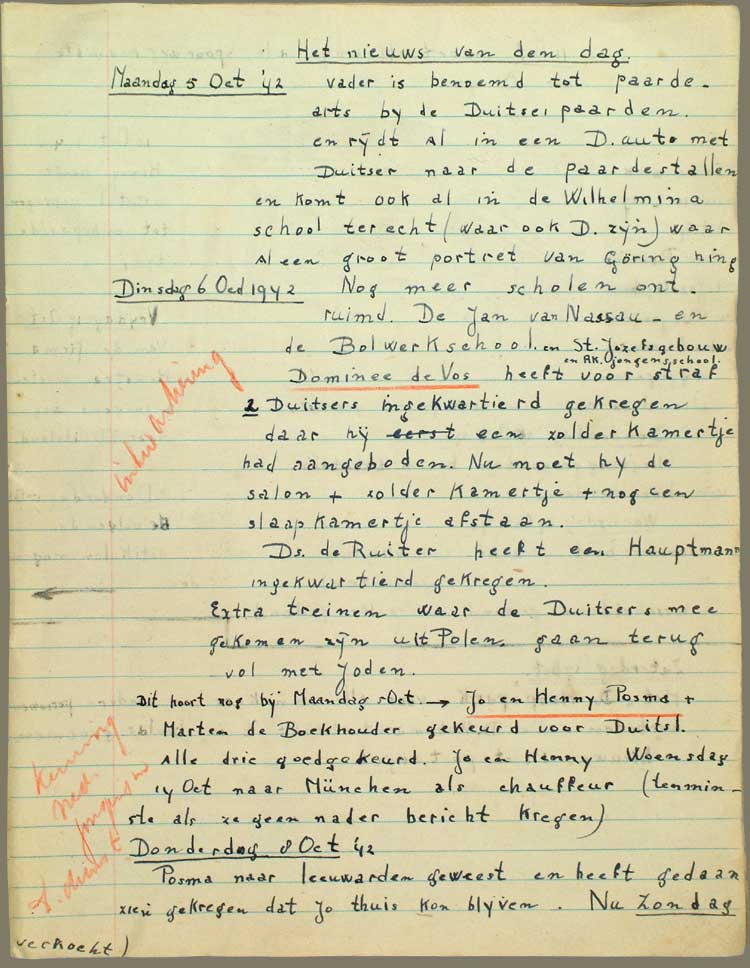 Het nieuws van den dag.
Maandag 5 Oct '42 vader is benoemd tot paarde-
arts by de Duitse paarden.
en rÿdt al in een D. auto met
Duitser naar de paardestallen
en komt ook al in de Wilhelmina
school terecht (waar ook D. zÿn) waar
al een groot portret van Göring hing
Dinsdag 6 Oct 1942 Nog meer scholen ont-
ruimd. De Jan van Nassau - en
de Bolwerkschool. en St. Jozefsgebouw
en R.K. Jongensschool.
Dominee de Vos heeft voor straf
inkwartiering
2 Duitsers ingekwartierd gekregen
daar hÿ eerst een zolderkamertje
had aangeboden. Nu moet hy de
salon + zolderkamertje + nog een
slaapkamertje afstaan.
Ds. de Ruiter heeft een Hauptmann
ingekwartierd gekregen.
Extra treinen waar de Duitsers mee
gekomen zÿn uit Polen, gaan terug
vol met Joden.
Dit hoort nog bÿ Maandag 5 Oct → Jo en Henny Posma +
Marten de Boekhouder gekeurd voor Duitsl.
Alle drie goedgekeurd. Jo en Henny Woensdag
14 Oct naar München als chauffeur (tenmin-
ste als ze geen nader bericht kregen)
keuring
ned.
jongens in
D. dienst
Donderdag 8 Oct '42
Posma naar Leeuwarden geweest en heeft gedaan
zien gekregen dat Jo thuis kon blyven. Nu Zondag
verkocht)